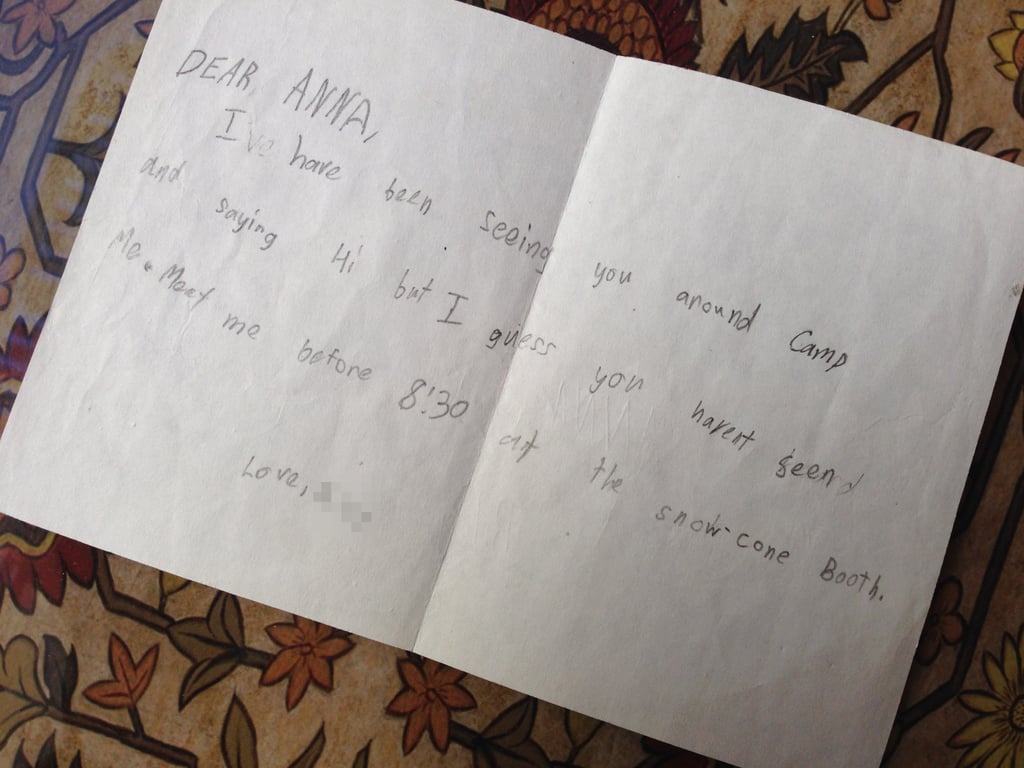 DEAR, ANNA,
I've have been seeing you around Camp
and saying Hi but I guess you havent seen
Me. Meet me before 8:30 at the snow-cone Booth.
Love,